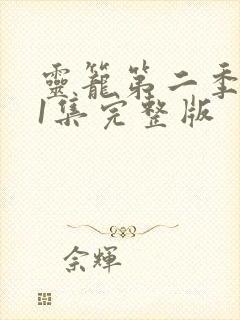 靈籠第二季
1集完整版
佘輝